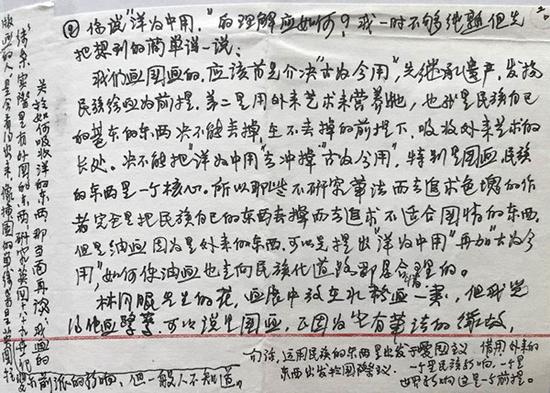 ②你说"洋为中用"的理解应如何？我一时不够纯熟但先
把想到的简单说一说：
我们画国画的，应该首先介决"古为今用"，先继承遗产，发扬
民族绘画为前提。第二是用外来艺术来营养她，也就是民族自己
的基本的东西决不能丢掉在不丢掉的前提下，吸收外来艺术的
长处。决不能把"洋为中用"去冲掉"古为今用"，特别是国画，民族
的东西是一个核心。所以那些不研究笔法而去追求色块的作
者究竟是把民族自己的东西丢掉而去追求不适合国情的东西，
但是油画因为是外来的东西，可以先提出"洋为中用"再加"古为今
用"，如何使油画也走向民族化道路那是合理的。
林风眠先生的花，画展中放在水粉画一类，但我觉
得他画 可以说是国画，正因为它有笔法的
句话，运用民族的东西是出发于爱国主义 借用外来的
东西出发于国际主义。一个是民族影响，一个是
世界影响这是一个前提。
关于如何吸收洋的东西那当面再谈，我画的
实际里有外国的东西研究英国
版画的人是会看得出来，
前派的影响，但一般人不知道。